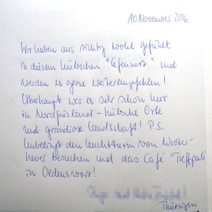 10. November 2016
Wir haben uns richtig wohl gefühlt
in diesem hübschen "Ferienort" und
werden es gerne weiterempfehlen!
Überhaupt war es sehr schön hier
in Nordfriesland - hübsche Orte
und grandiose Landschaft! P.S.
Unbedingt den Leuchtturm von Wester-
hever besuchen und das Café "Treffpunkt"
in Oldenswort!
Thüringen